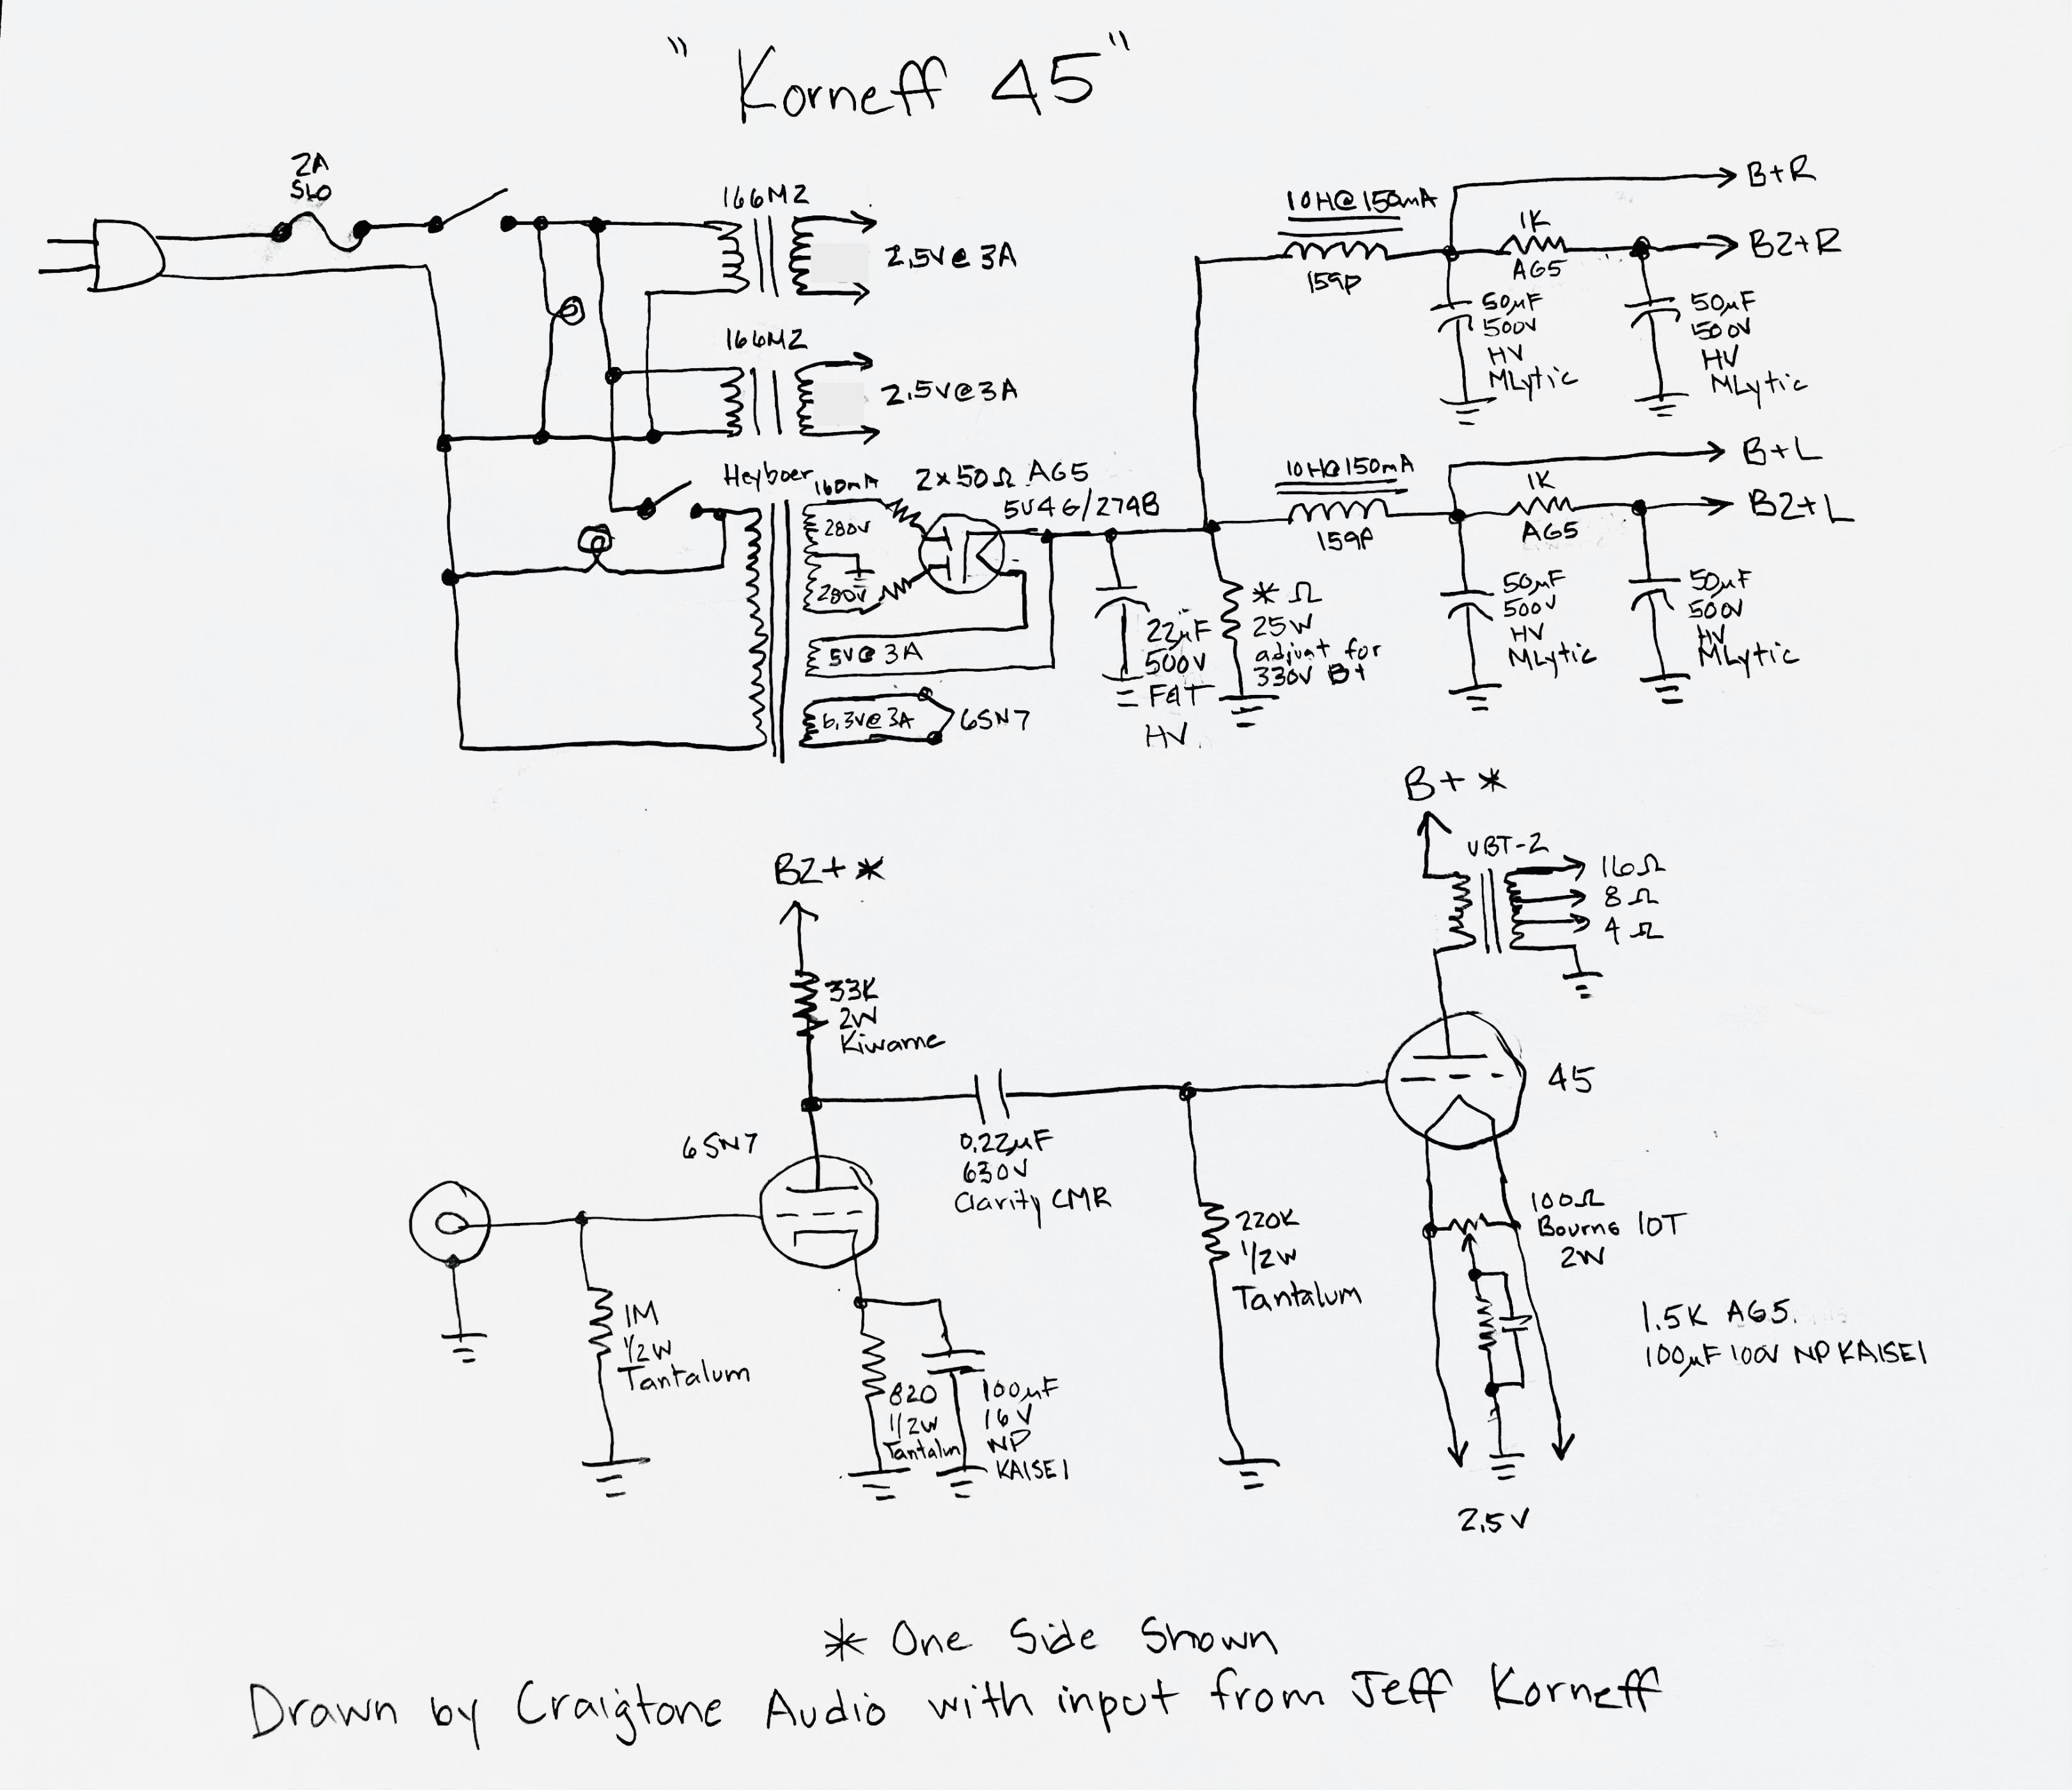 "Korneff 45"
2A
SLO
166M2
2.5V@3A
166M2
2.5V@3A
Heyboer
160mA
280V
280V
2x50Ω AG5
5V4G/274B
5V@3A
6.3V@3A
6SN7
22µF
500V
FAT
HV
* Ω
25W
adjust for
330V B+
10H@150mA
159P
1K
AG5
B+R
B2+R
50µF
500V
HV
MLytic
50µF
500V
HV
MLytic
10H@150mA
159P
1K
AG5
B+L
B2+L
50µF
500V
HV
MLytic
50µF
500V
HV
MLytic
B2+*
33K
2W
Kiwame
6SN7
1M
1/2W
Tantalum
820
1/2W
Tantalum
100µF
16V
NP
KAISEI
0.22µF
630V
Clarity CMR
220K
1/2W
Tantalum
B+*
VBT-2
16Ω
8Ω
4Ω
45
100Ω
Bourns 10T
2W
1.5K AG5.
100µF 100V NP KAISEI
2.5V
* One Side Shown
Drawn by Craigtone Audio with input from Jeff Korneff